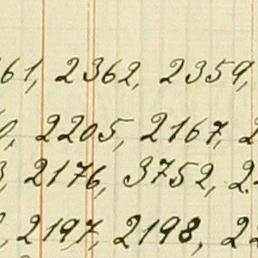 61, 2362, 2359,
0, 2205, 2167, 2
3, 2176, 3752, 2
2, 2197, 2198, 22